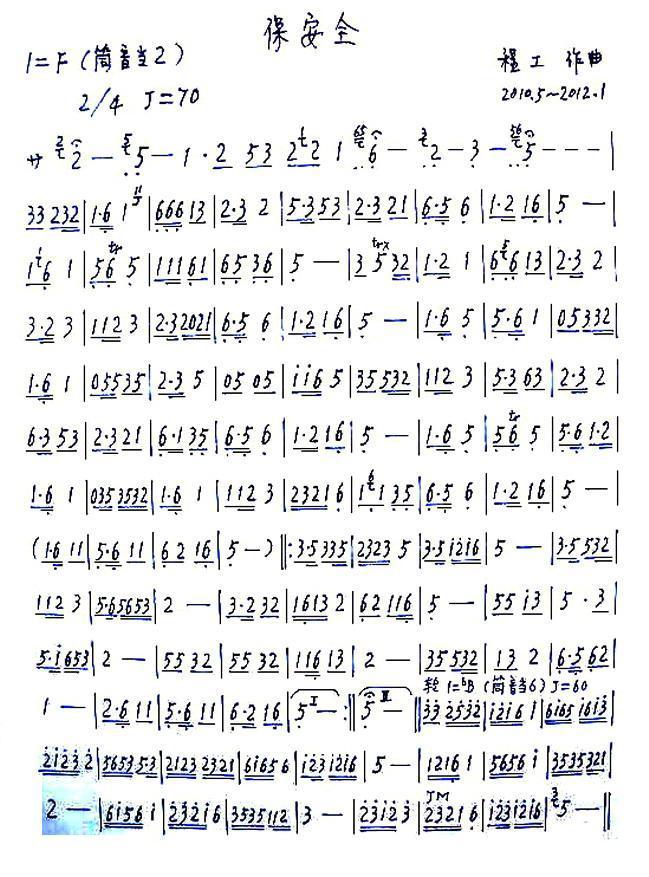 保安全
1=F (筒音当2)
程工 作曲
2/4 J=70
2010.5~2012.1
サ 2 — 5 — 1 · 2 53 2 2 1 6 — 2 — 3 — 5 — — — |
33 232 | 1·6 1 | 666 13 | 2·3 2 | 5·3 53 | 2·3 21 | 6·5 6 | 1·2 16 | 5 — |
1 6 1 | 5 6 5 | 111 61 | 65 36 | 5 — | 3 5 32 | 1·2 1 | 6 6 13 | 2·3 2 |
3·2 3 | 112 3 | 2·3 2021 | 6·5 6 | 1·2 16 | 5 — | 1·6 5 | 5·6 1 | 05 332 |
1·6 1 | 05 535 | 2·3 5 | 05 05 | i i 6 5 | 35 532 | 112 3 | 5·3 63 | 2·3 2 |
6·3 53 | 2·3 21 | 6·1 35 | 6·5 6 | 1·2 16 | 5 — | 1·6 5 | 5 6 5 | 5·6 1·2 |
1·6 1 | 035 3532 | 1·6 1 | 112 3 | 232 1 6 | 1 1 35 | 6·5 6 | 1·2 16 | 5 — |
(1·6 11 | 5·6 11 | 6 2 16 | 5 —) ‖: 3·5 335 | 2323 5 | 3·5 i2i6 | 5 — | 3·5 532 |
112 3 | 5·6 5653 | 2 — | 3·2 32 | 1613 2 | 62 116 | 5 — | 55 i3 | 5 · 3 |
5·i 653 | 2 — | 55 32 | 55 32 | 116 13 | 2 — | 35 532 | 13 2 | 6·5 62 |
轮 1=♭B (筒音当6) J=60
1 — | 2·6 11 | 5·6 11 | 6·2 16 | 5 I — :‖ 5 II — ‖ 33 2532 | i2i6 1 | 6i65 i6i3 |
2i23 2 | 5653 53 | 2123 2321 | 6165 6 | i23 i2i6 | 5 — | 1216 1 | 5656 i | 3535321 |
2 — | 6156 1 | 232i6 | 3535 112 | 3 — | 23i23 | 2321 6 | i23i2i6 | 5 — ‖